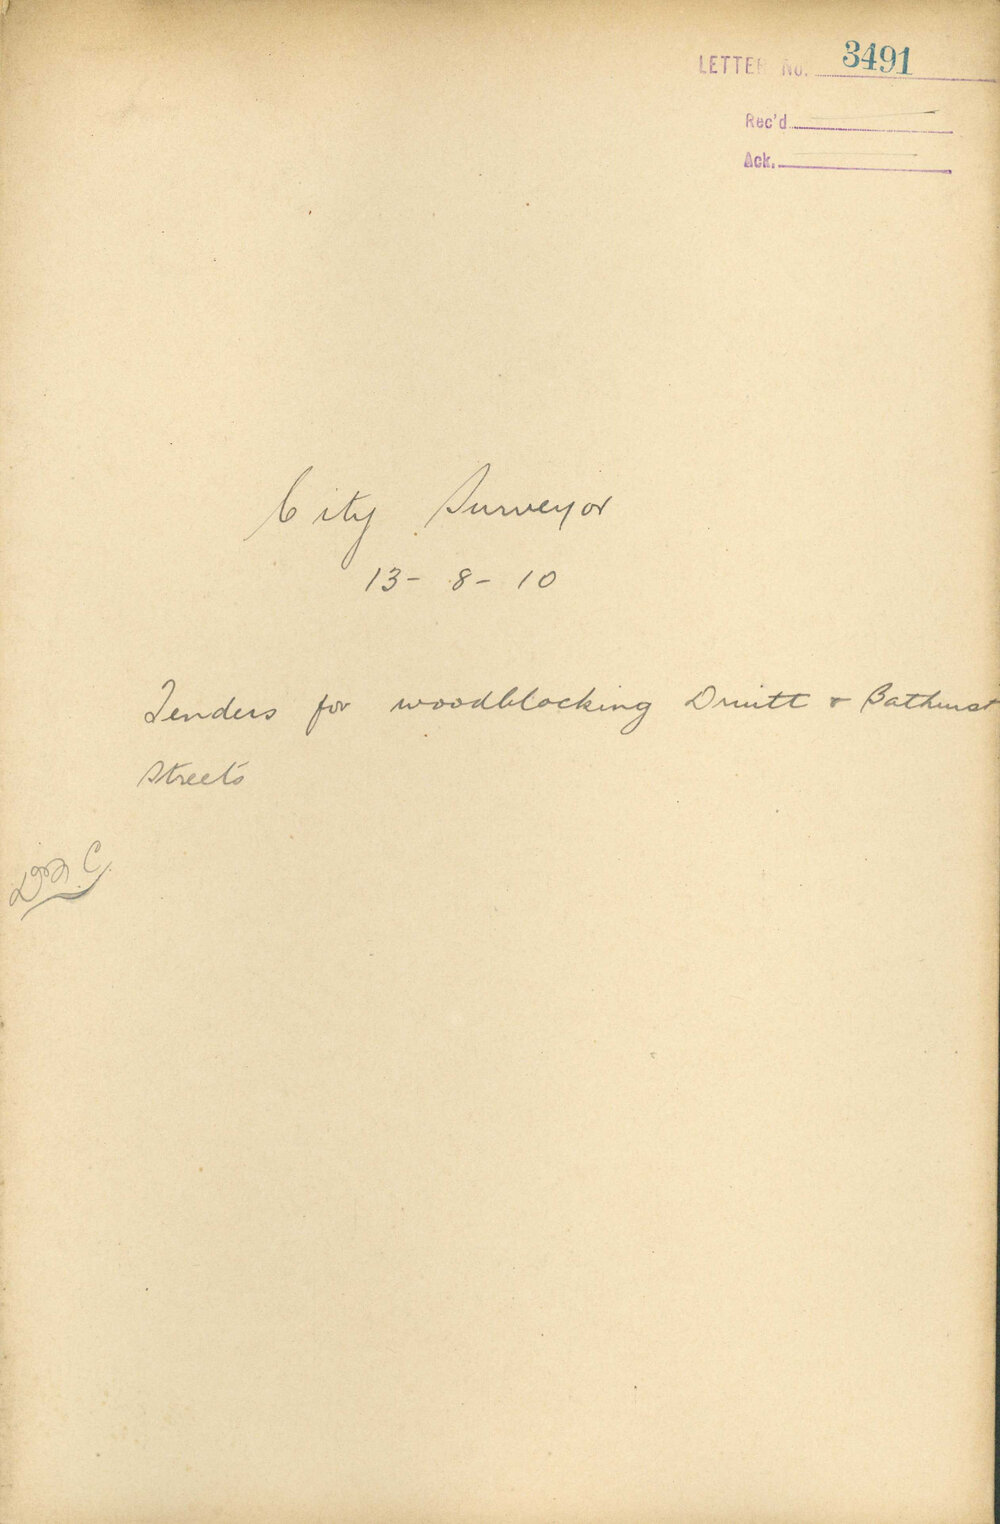 LETTER No. 3491
Rec'd
Ack.
City Surveyor
13-8-10
Tenders for woodblocking Druitt & Bathurst
Streets